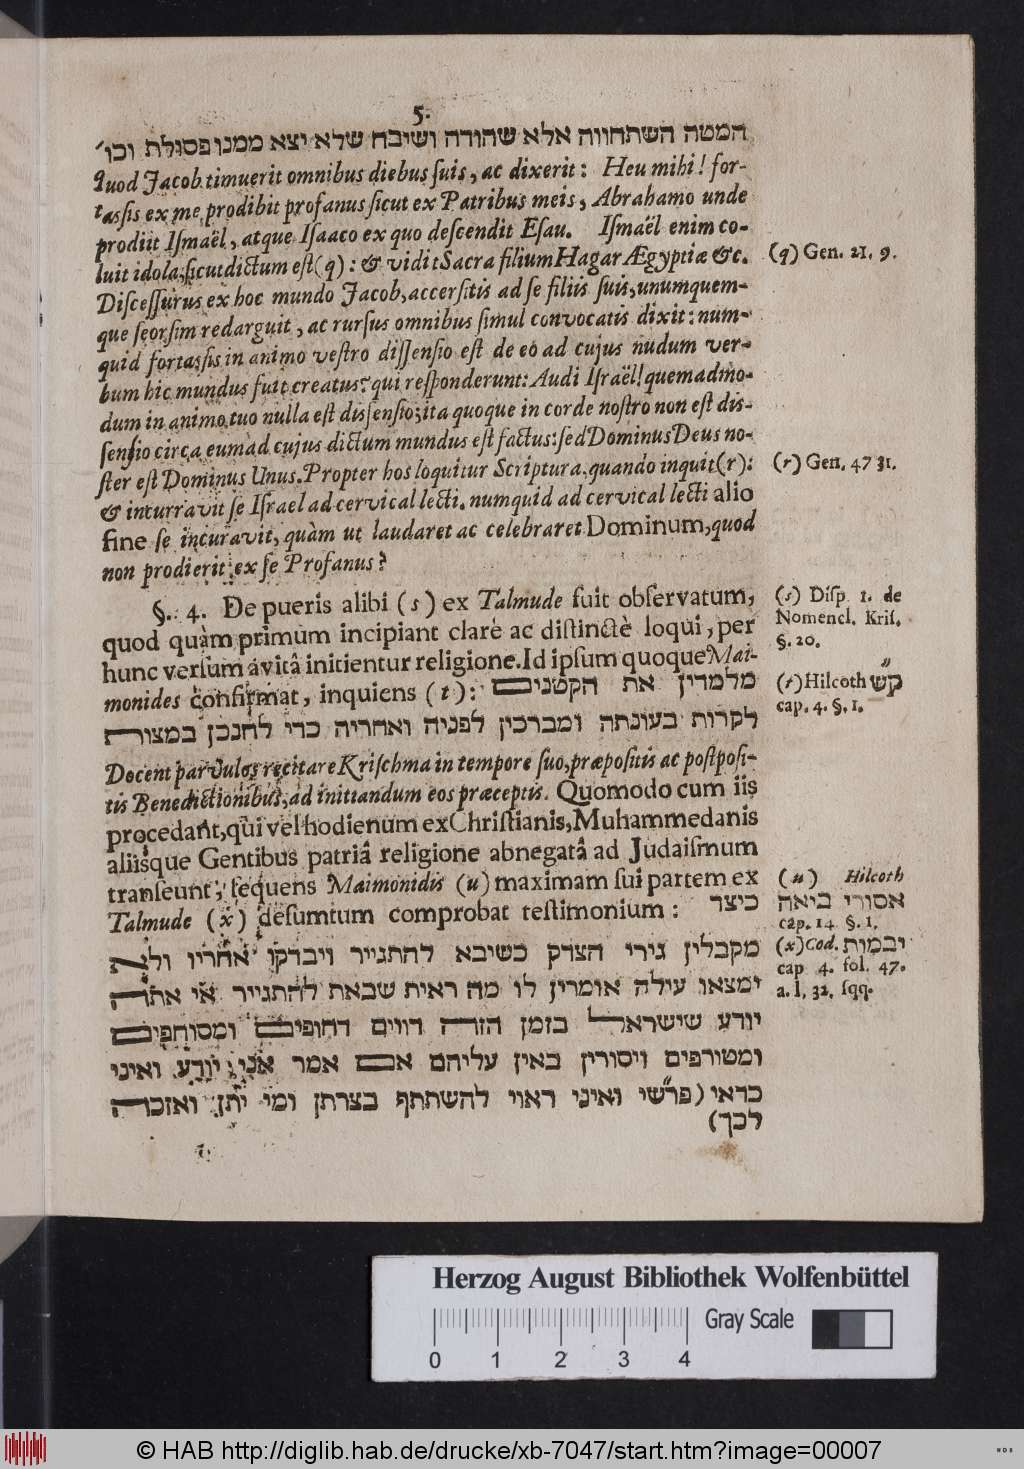 5.
המטה השתחווה אלא שהודה ושיבח שלא יצא ממנו פסולת וכו׳
Quod Jacob timuerit omnibus diebus ſuis, ac dixerit: Heu mihi! for-
taſsis ex me prodibit profanus ſicut ex Patribus meis, Abrahamo unde
prodiit Iſmaël, atque Iſaaco ex quo deſcendit Eſau. Iſmaël enim co-
luit idola, ſicut dictum eſt (q): & vidit Sacra filium Hagar Ægyptiæ &c.
(q) Gen. 21. 9.
Diſceſſurus ex hoc mundo Jacob, accerſitis ad ſe filiis ſuis, unumquem-
que ſeorſim redarguit, ac rurſus omnibus ſimul convocatis dixit: num-
quid fortaſsis in animo veſtro diſſenſio eſt de eò ad cujus nudum ver-
bum hic mundus fuit creatus? qui reſponderunt: Audi Iſraël! quemadmo-
dum in animo tuo nulla eſt diſſenſio; ita quoque in corde noſtro non eſt diſ-
ſenſio circa eum ad cujus dictum mundus eſt factus: ſed Dominus Deus no-
ſter eſt Dominus Unus. Propter hos loquitur Scriptura, quando inquit (r):
(r) Gen. 47 31.
& incurravit ſe Iſrael ad cervical lecti. numquid ad cervical lecti alio
fine ſe incuravit, quàm ut laudaret ac celebraret Dominum, quod
non prodierit ex ſe Profanus?
§. 4. De pueris alibi (s) ex Talmude fuit obſervatum,
(s) Diſp. 1. de
Nomencl. Kriſ.
§. 20.
quod quàm primum incipiant clarè ac diſtinctè loqui, per
hunc verſum avitâ initientur religione. Id ipſum quoque Mai-
monides confirmat, inquiens (t): מלמדין את הקטנים
(t) Hilcoth קש״
cap. 4. §. 1.
לקרות בעונתה ומברכין לפניה ואחריה כדי לחנכן במצות
Docent parvulos recitare Kriſchma in tempore ſuo, præpoſitis ac poſtpoſi-
tis Benedictionibus, ad initiandum eos præceptis. Quomodo cum iis
procedant, qui vel hodienum ex Chriſtianis, Muhammedanis
aliisque Gentibus patriâ religione abnegatâ ad Judaiſmum
tranſeunt, ſequens Maimonidis (u) maximam ſui partem ex
(u) Hilcoth
אסורי ביאה
cap. 14 §. 1.
Talmude (x) deſumtum comprobat teſtimonium: כיצד
(x) Cod. יבמות
cap 4. fol. 47.
a. l. 32. ſqq.
מקבלין גירי הצדק כשיבא להתגייר ויבדקו אחריו ולא
ימצאו עילה אומרין לו מה ראית שבאת להתגייר אי אתה
יודע שישראל בזמן הזה דווים דחופים ומסוחפים
ומטורפים ויסורין באין עליהם אם אמר אני יודע ואיני
כדאי (פרשי ואיני ראוי להשתתף בצרתן ומי יתן ואזכה
לכך)
Herzog August Bibliothek Wolfenbüttel
Gray Scale
0 1 2 3 4
© HAB http://diglib.hab.de/drucke/xb-7047/start.htm?image=00007